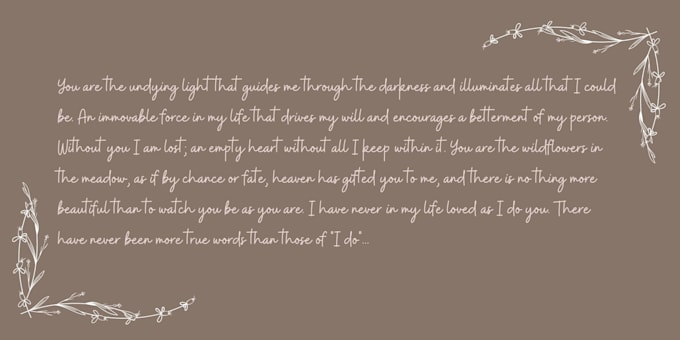 You are the undying light that guides me through the darkness and illuminates all that I could
be. An immovable force in my life that drives my will and encourages a betterment of my person.
Without you I am lost; an empty heart without all I keep within it. You are the wildflowers in
the meadow, as if by chance or fate, heaven has gifted you to me, and there is no thing more
beautiful than to watch you be as you are. I have never in my life loved as I do you. There
have never been more true words than those of "I do"...